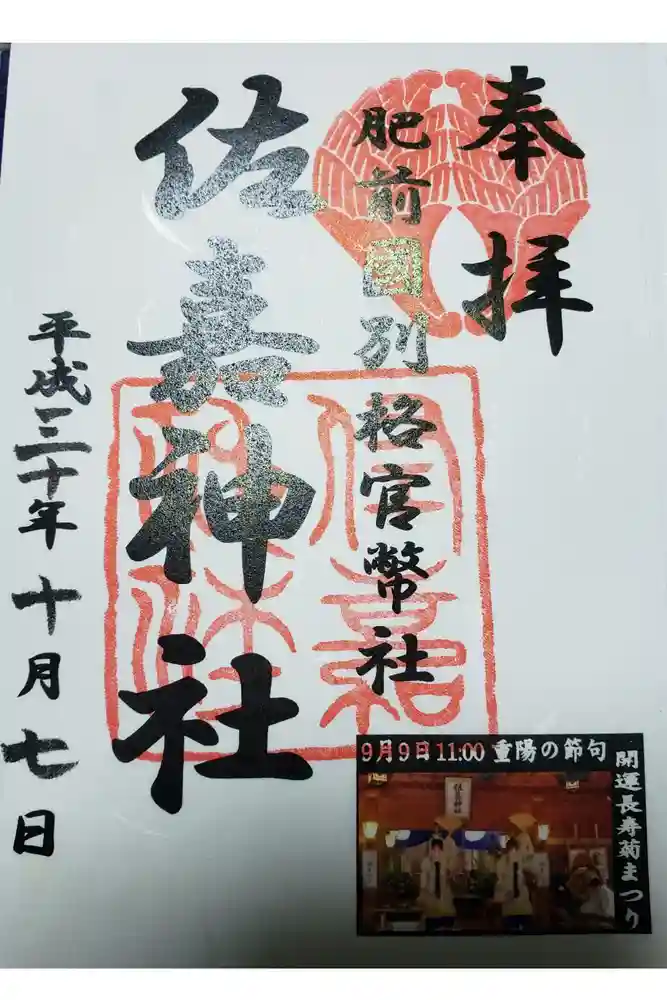 奉拝
肥前國別格官幣社
佐嘉神社
平成三十年十月七日
佐嘉神社
9月9日11:00 重陽の節句
開運長寿菊まつり
佐嘉神社